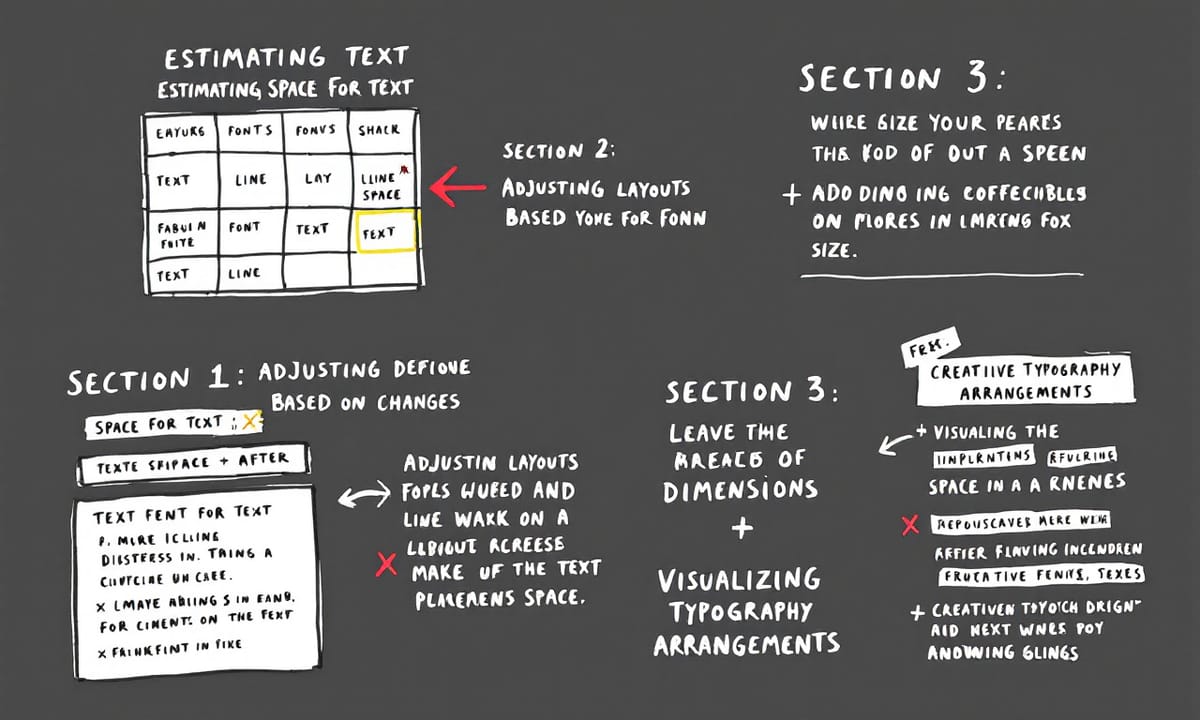 ESTIMATING TEXT
ESTIMATING SPACE FOR TEXT
EAYURG FONTS FONVS SHACK
TEXT LINE LAY LLINE SPACE
FABUI N FNITE FONT TEXT FEXT
TEXT LINE
SECTION 2:
ADJUSTING LAYOUTS
BASED YOKE FOR FONN
SECTION 3:
WIIRE SIZE YOUR PEARES
THE KOD OF OUT A SPEEN
+ ADO DING ING COFFECHBLES
ON MORES IN LMRTNG FOX
SIZE.
SECTION 1: ADJUSTING DEFIONE
BASED ON CHANGES
SPACE FOR TEXT : X
TEXTE SPIPACE + AFTER
TEXT FENT FOR TEXT
P. MIRE ICLLING
DIISTERSS IN. THING A
CHUTCINE UN CAEE.
X LMAYE ABIING S IN EANG.
FOR CIMENT: ON THE FEXT
X FRINKFIINT IN FIKE
ADJUSTIN LAYOUTS
FOPLS WUFED AND
LINE WAKK ON A
LLBIGUT ACREESE
X MAKE UF THE TEXT
PLAERENS SPACE.
SECTION 3:
LEAVE THE
AREACS OF
DIMENSIONS
+
VISUALIZING
TYPOGRAPHY
ARRANGEMENTS
FREE.
CREATIIVE TYPOGRAPHY
ARRANGEMENTS
+ VISUALING THE
IINPLENTINS RFUERINE
SPACE IN A A RNENES
X REPOUSCAVES MERE WINE
AFFIER FLAVING INCENDREN
FRUCATIVE FENITS, TEXES
+ CREATIVEN TOYOTCH DRIGN
AID NEXT WNES POY
ANOWING GLINGS